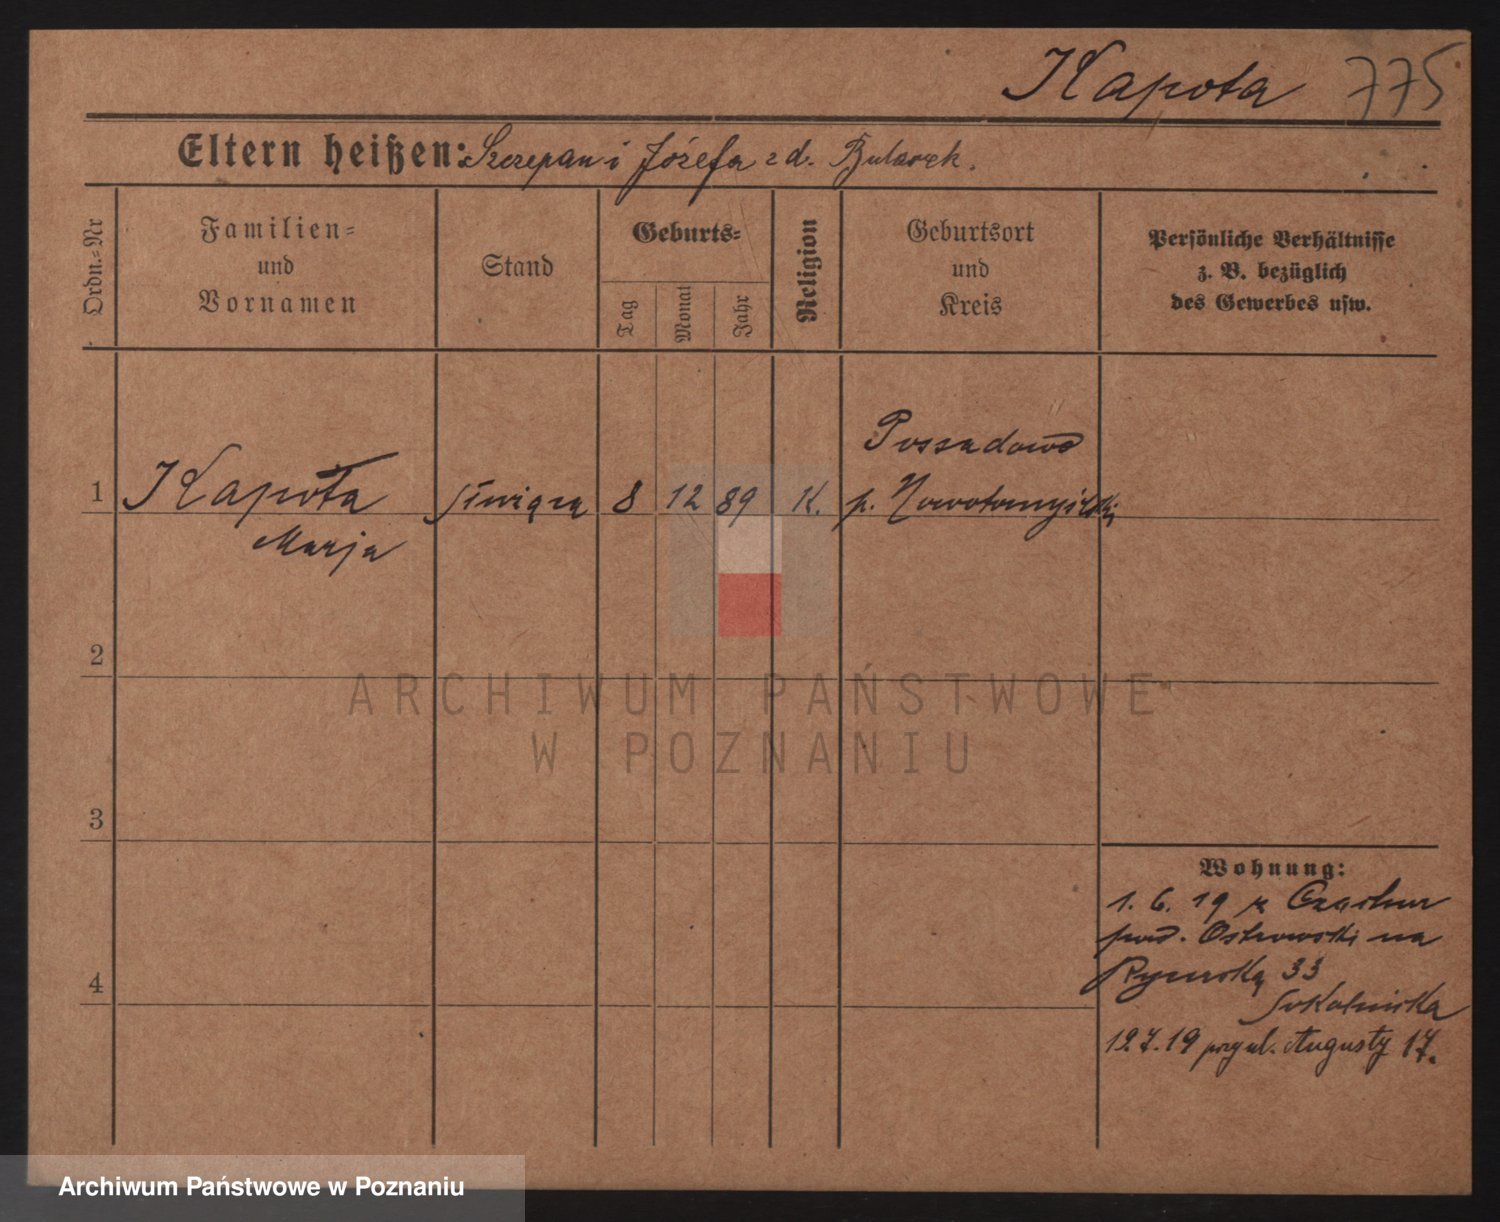 Kapota 775
Eltern heißen: Szczepan i Józefa z d.
Ordn.-Nr
Familien-
und
Vornamen
Stand
Geburts-
Tag
Monat
Jahr
Religion
Geburtsort
und
Kreis
Persönliche Verhältnisse
z. B. bezüglich
des Gewerbes usw.
1 Kapota
Marja
służąca
8 12 89 K.
Possadowo
p. Nowotomyski
2
3
4
Wohnung:
1. 6. 19 z
pow. Ostrowski na
Rycerską 33
Sokolnicka
12.7.19 przy ul. Augusty 17.
ARCHIWUM PAŃSTWOWE
W POZNANIU
Archiwum Państwowe w Poznaniu